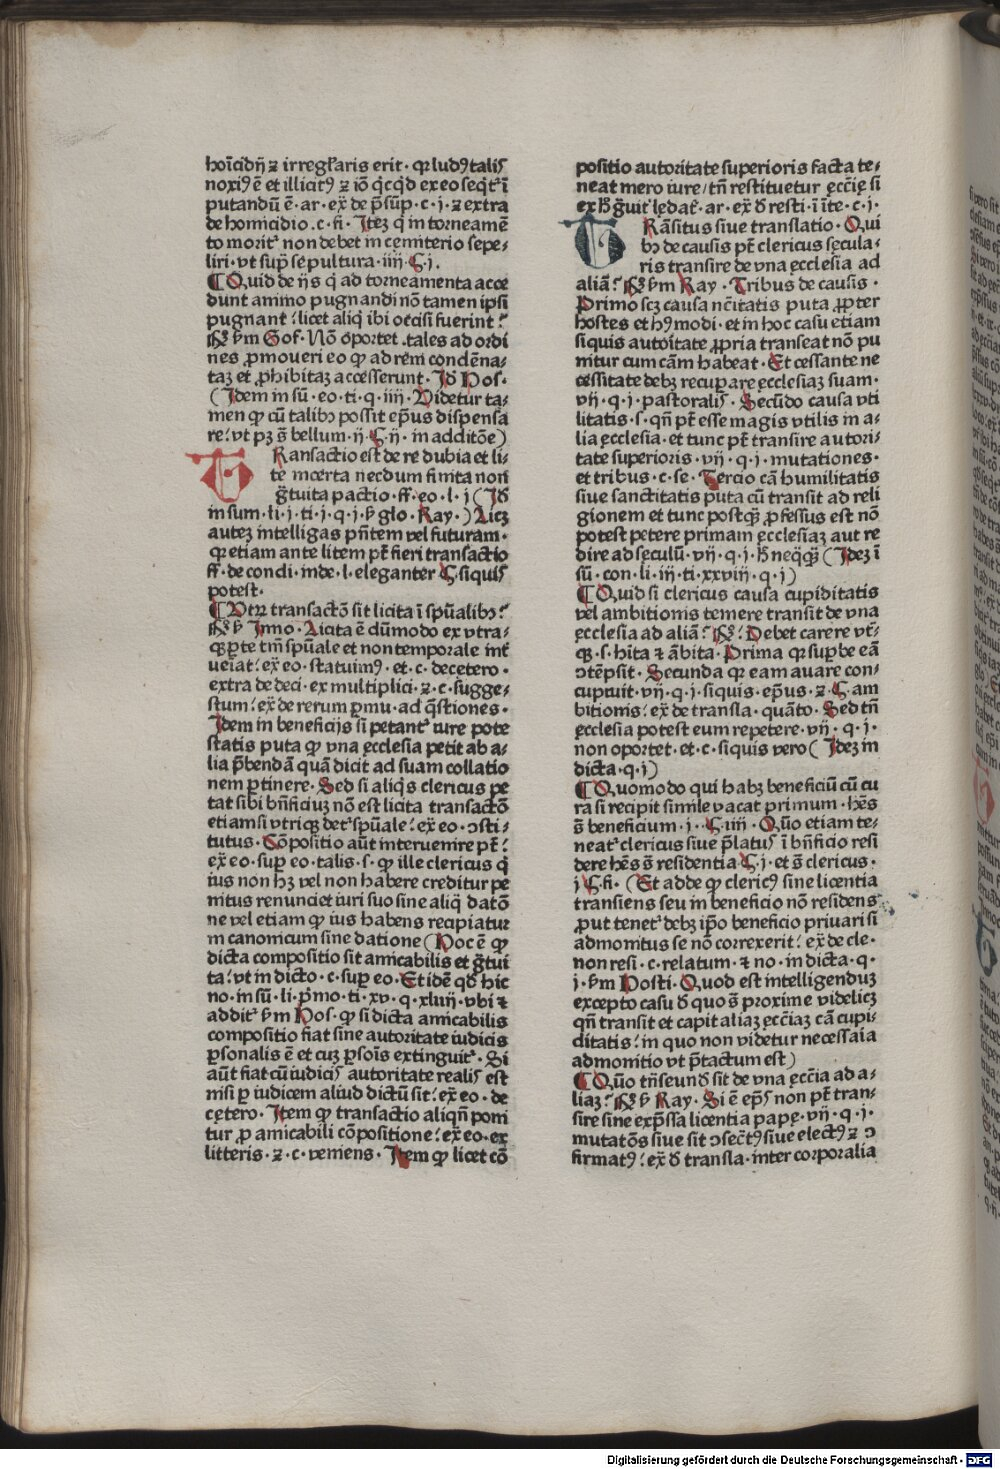 hoīcidij ⁊ irregl̄aris erit · qꝛ ludꝰ talis
noxiꝰ ē et illicitꝰ ⁊ iō qͥcqͥd ex eo seqͥt᷑ ī
putandū ē · ar · ex̄ de p̄sūp · c · j · ⁊ extra
de homicidio · c · fi · Itez qͥ in torneamē
to morit᷑ non debet in cemiterio sepe⸗
liri · vt sup̄ sepultura · iiij · §· j ·
¶ Quid de ijs qͥ ad torneamenta acce
dunt animo pugnandi nō tamen ipsi
pugnant : licet aliqͥ ibi occisi fuerint ?
Rꝰ ẜm Gof · Nō oportet tales ad ordi
nes ꝓmoueri eo ꝙ ad rem condēna⸗
taꝫ et ꝓhibitaꝫ accesserunt · Id̄ Hos ·
( Idem in sū · eo · ti · q · iiij · Videtur ta⸗
men ꝙ cū talibꝫ possit ep̄us dispensa
re : vt pꝫ s̄ bellum · ij · §· ij · in additōe )
TRansactio est de re dubia et li⸗
te incerta necdum finita non
gͣtuita pactio · ff · eo · l · j ( Id̄
in sum · li · j · ti · j · q · j · ẜ glo · Ray · ) Licꝫ
auteꝫ intelligas pn̄tem vel futuram ·
qꝛ etiam ante litem pt̄ fieri transactio
ff · de condi · inde · l · eleganter §· siquis
potest ·
¶ Vtrꝫ transactō sit licita ī spūalibꝫ ?
Rꝰ ẜ Inno · Licita ē dūmodo ex vtra⸗
qꝫ ꝑte tm̄ spūale et non temporale int̄
ueiat : ex̄ eo · statuimꝰ · et · c · de cetero ·
extra de deci · ex multiplici · ⁊ · c · sugge⸗
stum : ex̄ de rerum ꝑmu · ad qͣstiones ·
Idem in beneficijs si petant᷑ iure pote
statis puta ꝙ vna ecclesia petit ab a⸗
lia p̄bendā quā dicit ad suam collatio
nem ꝑtinere · Sed si aliqͥs clericus pe
tat sibi bn̄ficiuꝫ nō est licita transactō
etiam si vtriqꝫ det᷑ spūale : ex̄ eo · ꝯsti⸗
tutus · Cōpositio aūt interuenire pt̄ :
ex̄ eo · suꝑ eo · talis · s · ꝙ ille clericus qͥ
ius non hꝫ vel non habere creditur pe
nitus renunciet iuri suo sine aliqͣ datō
ne vel etiam ꝙ ius habens recipiatur
in canonicum sine datione ( Hoc ē ꝙ
dicta compositio sit amicabilis et gͣtui
ta : vt in dicto · c · suꝑ eo · Et idē qd̄ hic
no · in sū · li · pͥmo · ti · xv · q · xlvij · vbi ⁊
addit᷑ ẜm Hos · ꝙ si dicta amicabilis
compositio fiat sine autoritate iudicis
ꝑsonalis ē et cuꝫ ꝑsoīs extinguit᷑ · Si
aūt fiat cū iudicis autoritate realis est
nisi ꝑ iudicem aliud dictū sit : ex̄ eo · de
cętero · Item ꝙ transactio aliqn̄ poni
tur ꝓ amicabili cōpositione : ex̄ eo · ex
litteris · ⁊ · c · veniens · Item ꝙ licet cō
positio autoritate superioris facta te⸗
neat mero iure / tn̄ restituetur ęcc̄ię si
ex h̄ gͣuit᷑ lędat᷑ · ar · ex̄ d̄ resti · ī īte · c · j ·
TRāsitus siue translatio · Qui
bꝫ de causis pt̄ clericus secula⸗
ris transire de vna ęcclesia ad
aliā ? Rꝰ ẜm Ray · Tribus de causis ·
Primo scꝫ causa nc̄itatis puta ꝓpter
hostes et hꝰmodi · et in hoc casu etiam
si quis autoītate ꝓpria transeat nō pu
nitur cum cām habeat · Et cessante ne
cessitate debꝫ recuꝑare ęcclesiaꝫ suam ·
vij · q · j · pastoralis · Secūdo causa vti
litatis · s · qn̄ pt̄ esse magis vtilis in a⸗
lia ecclesia · et tunc pt̄ transire autori⸗
tate superioris · vij · q · j · mutationes ·
et tribus · c · se · Tercio cā humilitatis
siue sanctitatis puta cū transit ad reli
gionem et tunc postqͣꝫ ꝓfessus est nō
potest petere primam ęcclesiaꝫ aut re
dire ad seculū · vij · q · j · h̄ neqͣqͣꝫ ( Ideꝫ ī
sū · con · li · iij · ti · xxviij · q · j )
¶ Quid si clericus causa cupiditatis
vel ambitionis temere transit de vna
ęcclesia ad aliā ? Rꝰ : Debet carere vt̄⸗
qꝫ · s · hita ⁊ ābita · Prima qꝛ suꝑbe eā
ꝯtēpsit · Secunda qꝛ eam auare con⸗
cupiuit · vij · q · j · siquis · ep̄us · ⁊ · §· am
bitionis : ex̄ de transla · quāto · Sed tn̄
ęcclesia potest eum repetere · vij · q · j ·
non oportet · et · c · siquis vero ( Ideꝫ in
dicta · q · j )
¶ Quomodo qui habꝫ beneficiū cū cu
ra si recipit simile vacat primum · hēs
s̄ beneficium · j · §· iiij · Qūo etiam te⸗
neat᷑ clericus siue p̄latus ī bn̄ficio resi
dere hēs s̄ residentia §· j · et s̄ clericus ·
j §· fi · ( Et adde ꝙ clericꝰ sine licentia
transiens seu in beneficio nō residens
ꝓut tenet᷑ debꝫ ip̄o beneficio priuari si
admonitus se nō correxerit : ex̄ de cle ·
non resi · c · relatum · ⁊ no · in dicta · q ·
j · ẜm Hosti · Quod est intelligenduꝫ
excepto casu d̄ quo s̄ proxime videlicꝫ
qn̄ transit et capit aliaꝫ ęcc̄iaꝫ cā cupi⸗
ditatis : in quo non videtur necessaia
admonitio vt p̄tactum est )
¶ Qūo tn̄seund̄ sit de vna ęcc̄ia ad a⸗
liaꝫ ? Rꝰ ẜ Ray · Si ē ep̄s non pt̄ tran⸗
sire sine exp̄ssa licentia papę · vij · q · j ·
mutatōs siue sit ꝯsec̄tꝰ siue electꝰ ⁊ ꝯ
firmatꝰ : ex̄ d̄ transla · inter corporalia
Digitalisierung gefördert durch die Deutsche Forschungsgemeinschaft - DFG